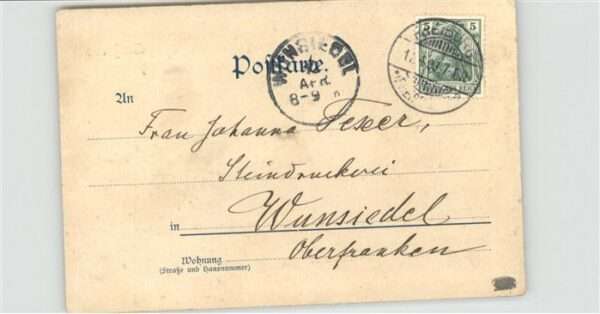 5 5
Postkarte.
WUNSIEDEL
12
APR.
8-9
An
Frau Johanna
Steindruckerei
in Wunsiedel
Oberfranken
Wohnung
(Straße und Hausnummer)